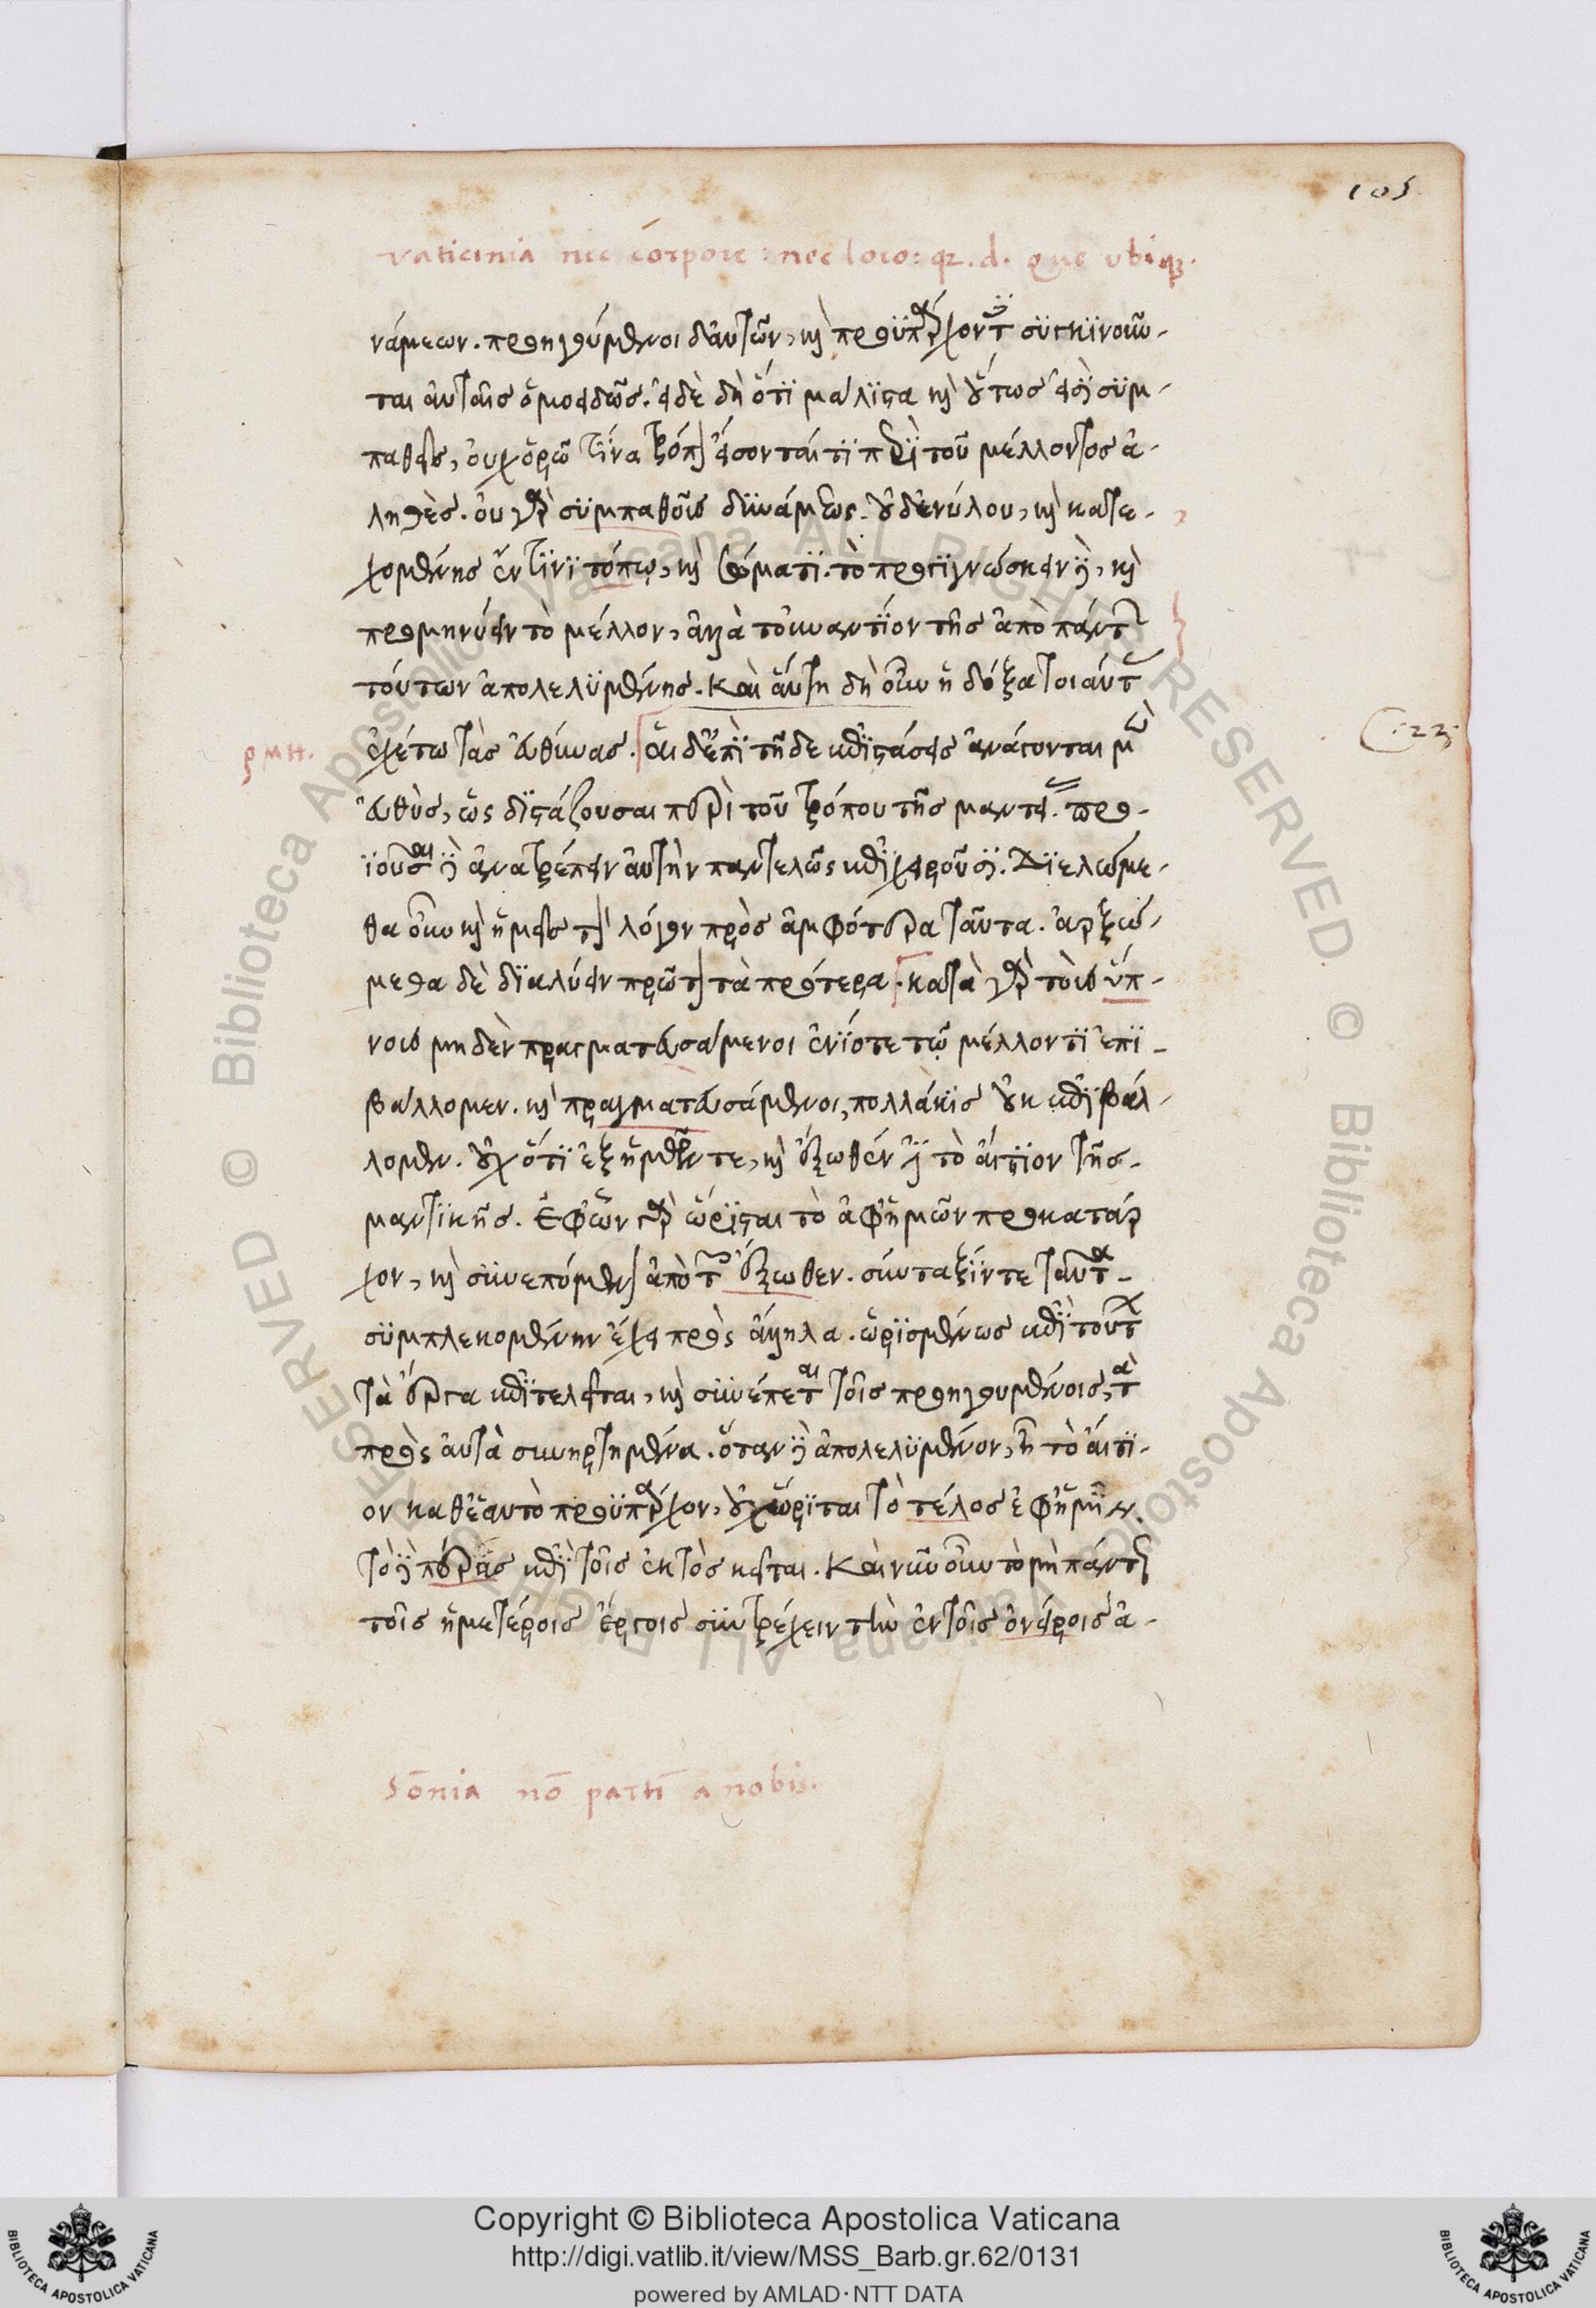 105
vaticinia nec corpore: nec loco: qz. d. que ubiqz.
νάμεων. προηγούμενοι δ'αυτῶν, καὶ προϋπάρχοντος συγκινοῦν-
ται αὐταῖς ὁμοειδῶς. εἰ δὲ δὴ ὅτι μάλιστα καὶ οὕτως εἰσὶ συμ-
παθεῖς, οὐχ ὁρῶ τίνα τρόπον ἔσονταί τι περὶ τοῦ μέλλοντος ἀ-
ληθὲς. οὐ γὰρ συμπαθοῦς δυνάμεως. οὐδ' ἐνύλου, καὶ κατε-
χομένης ἔν τινι τόπῳ, καὶ σώματι. τὸ προγιγνώσκειν ἐστὶ, καὶ
προμηνύειν τὸ μέλλον, ἀλλὰ τοὐναντίον τῆς ἀπὸ πάντων
τούτων ἀπολελυμένης. Καὶ αὕτη δὴ οὖν ἡ δόξα τοιαύτας
ἐχέτω τὰς εὐθύνας. αἱ δ' ἐπὶ τῇδε ἐπιστάσεις ἀνάγονται μὲν
ρμη.
:22:
εὐθὺς, ὡς διστάζουσαι περὶ τοῦ τρόπου τῆς μαντείας. προ-
ϊοῦσαι δὲ ἀνατρέπειν αὐτὴν παντελῶς ἐπιχειροῦσι. Διελώμε-
θα οὖν καὶ ἡμεῖς τὸν λόγον πρὸς ἀμφότερα ταῦτα. ἀρξώ-
μεθα δὲ διαλύειν πρῶτον τὰ πρότερα. κατὰ γὰρ τοὺς ὕπ-
νους μηδὲν πραγματευσάμενοι ἐνίοτε τῷ μέλλοντι ἐπι-
βάλλομεν. καὶ πραγματευσάμενοι, πολλάκις οὐκ ἐπιβάλ-
λομεν. οὐχ ὅτι ἐξ ἡμῶν τε, καὶ ἔξωθέν ἐστι τὸ αἴτιον τῆς-
μαντικῆς. Ἐφ' ὧν γὰρ ὥρισται τὸ ἀφ' ἡμῶν προκατάρ
χον, καὶ συνεπόμενον ἀπὸ τῶν ἔξωθεν. σύνταξίν τε ταῦτα-
συμπλεκομένην ἔχει πρὸς ἄλληλα. ὡρισμένως ἐπὶ τούτων
τὰ ἔργα ἐπιτελεῖται, καὶ συνέπεται τοῖς προηγουμένοις, τὰ
πρὸς αὐτὰ συνηρτημένα. ὅταν δὲ ἀπολελυμένον, ᾖ τὸ αἴτι-
ον καθ' ἑαυτὸ προϋπάρχον, οὐχ ὥρισται τὸ τέλος ἐφ' ἡμῖν.
τὸ δὲ πέρας ἐπὶ τοῖς ἐκτὸς κεῖται. Καὶ νῦν οὖν τὸ μὴ πάντως
τοῖς ἡμετέροις ἔργοις συντρέχειν τὴν ἐν τοῖς ὀνείροις ἀ-
Sōnia nō
a nobis.
Copyright © Biblioteca Apostolica Vaticana
http://digi.vatlib.it/view/MSS_Barb.gr.62/0131
powered by AMLAD·NTT DATA